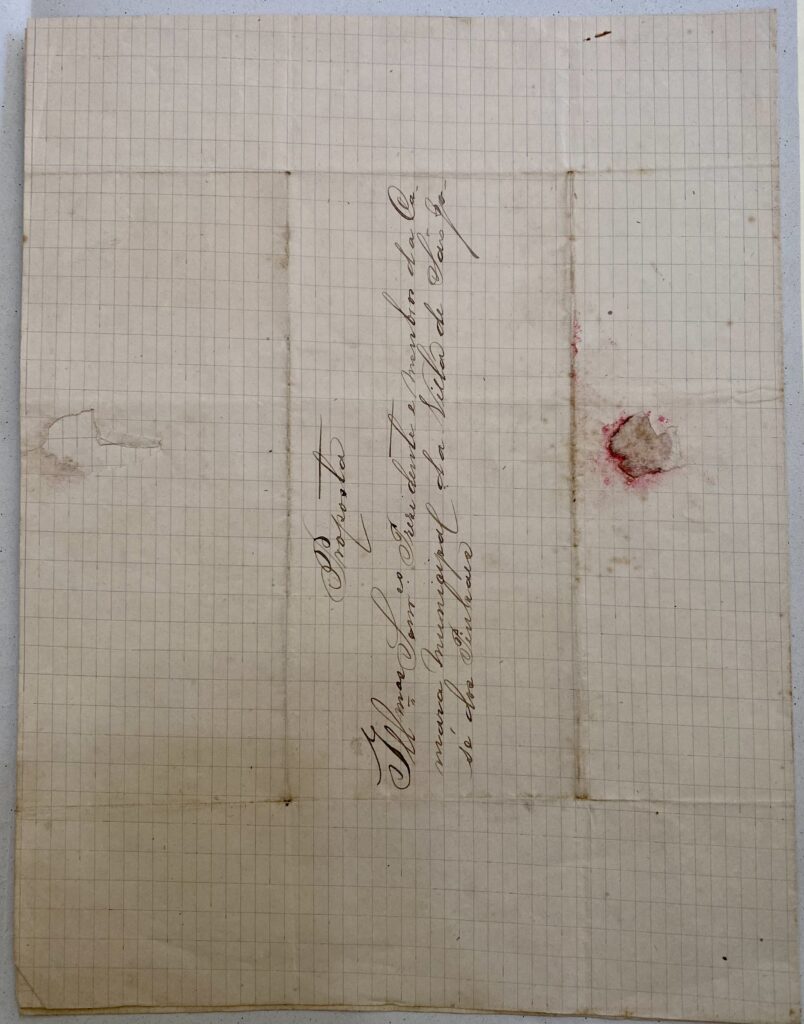 Proposta
Ill.mos Senr.es Prezidente e Membros da Ca-
mara Municipal da Villa de São Jo-
sé dos Pinhaes